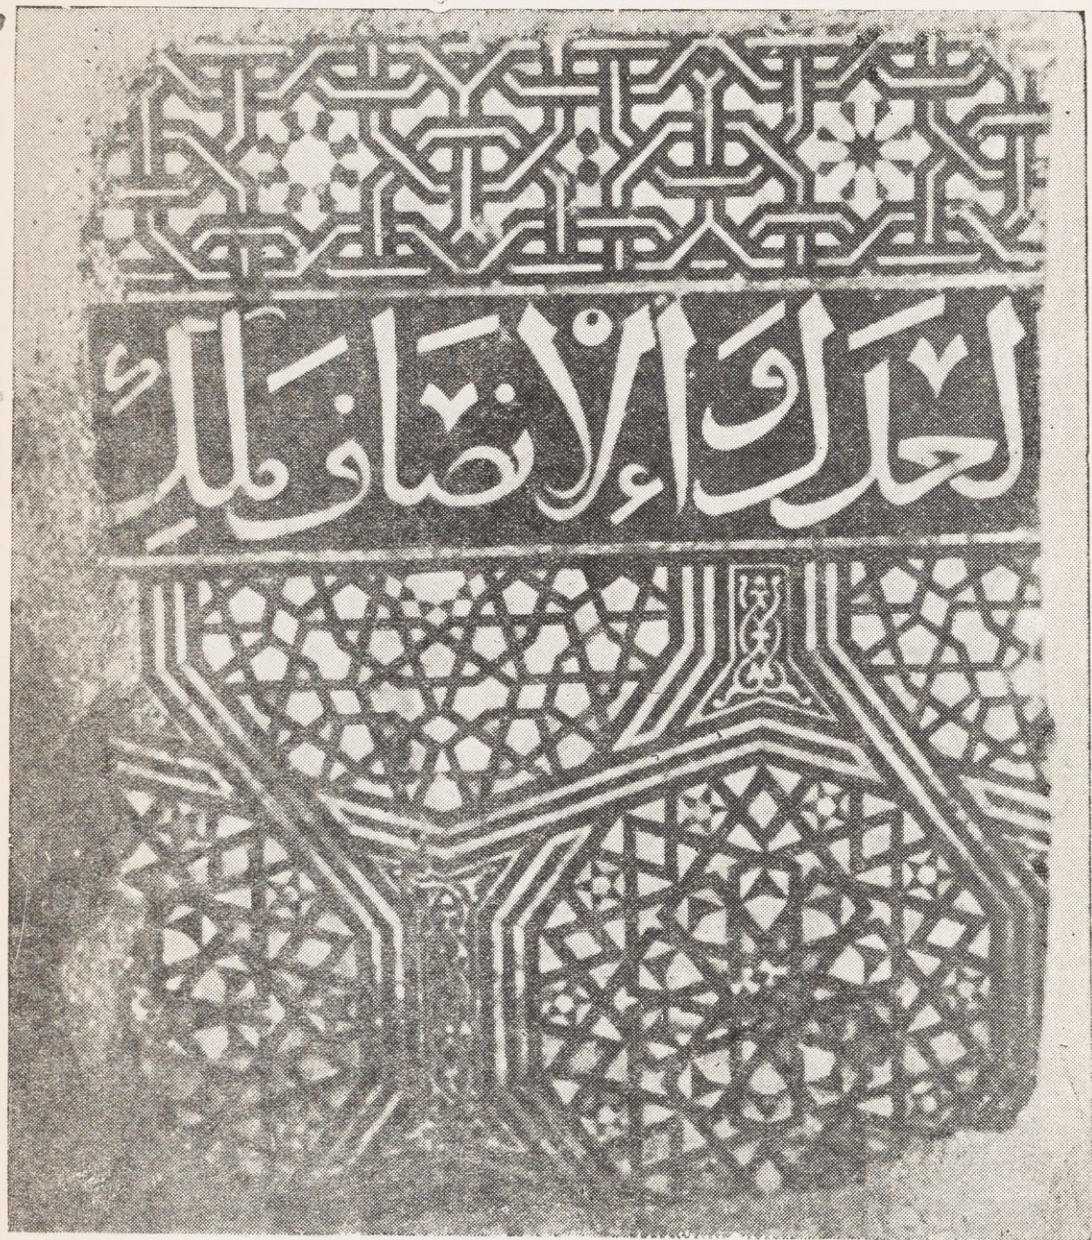 لعدل و الإنصاف ملك